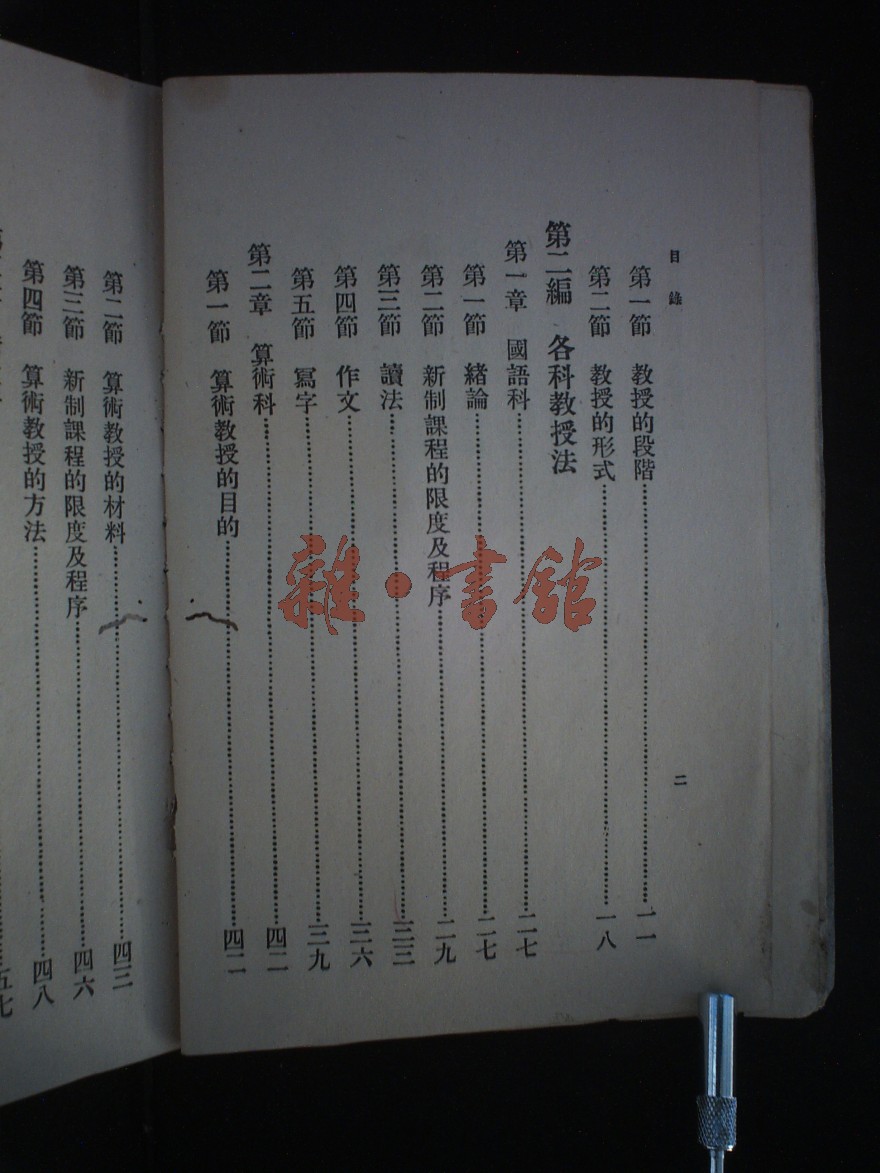 目錄
二
第一節 教授的段階……一一
第二節 教授的形式……一八
第二編 各科教授法
第一章 國語科……二七
第一節 緒論……二七
第二節 新制課程的限度及程序……二九
第三節 讀法……三三
第四節 作文……三六
第五節 寫字……三九
第二章 算術科……四二
第一節 算術教授的目的……四二
第二節 算術教授的材料……四三
第三節 新制課程的限度及程序……四六
第四節 算術教授的方法……四八
五七
雜·書館